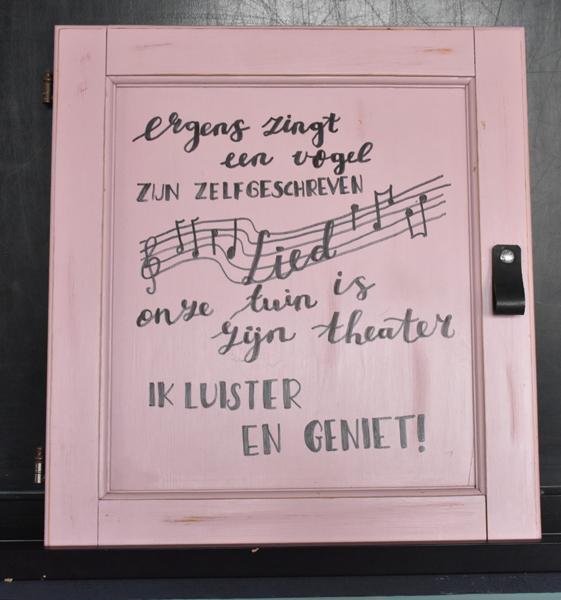 ergens zingt
een vogel
ZIJN ZELFGESCHREVEN
Lied
onze tuin is
zijn theater
IK LUISTER
EN GENIET!